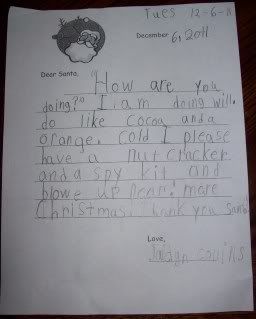 Tues 12-6-11
December 6, 2011
Dear Santa,
"How are you
doing?" I am doing will.
do like cocoa and a
orange. Cold I please
have a nut cracker
and a spy kit and
blowe up  mare
Christmas. Thank you Santa!
Love,
Jaidyn Collins